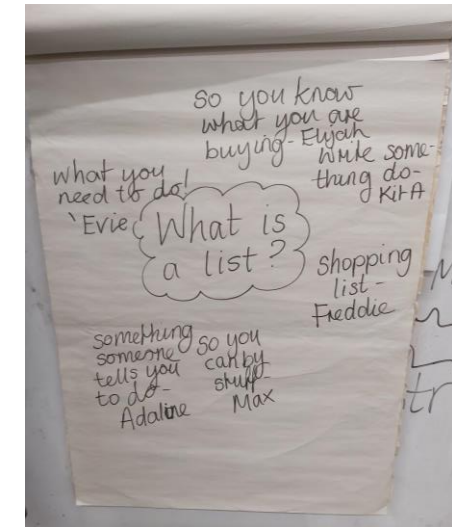 So you know
what you are
buying - Elijah
Write some-
thang do -
Kit A
what you
need to do!
Evie
What is
a list?
Shopping
list -
Freddie
something
someone
tells you
to do -
Adaline
So you
can by
stuff -
Max